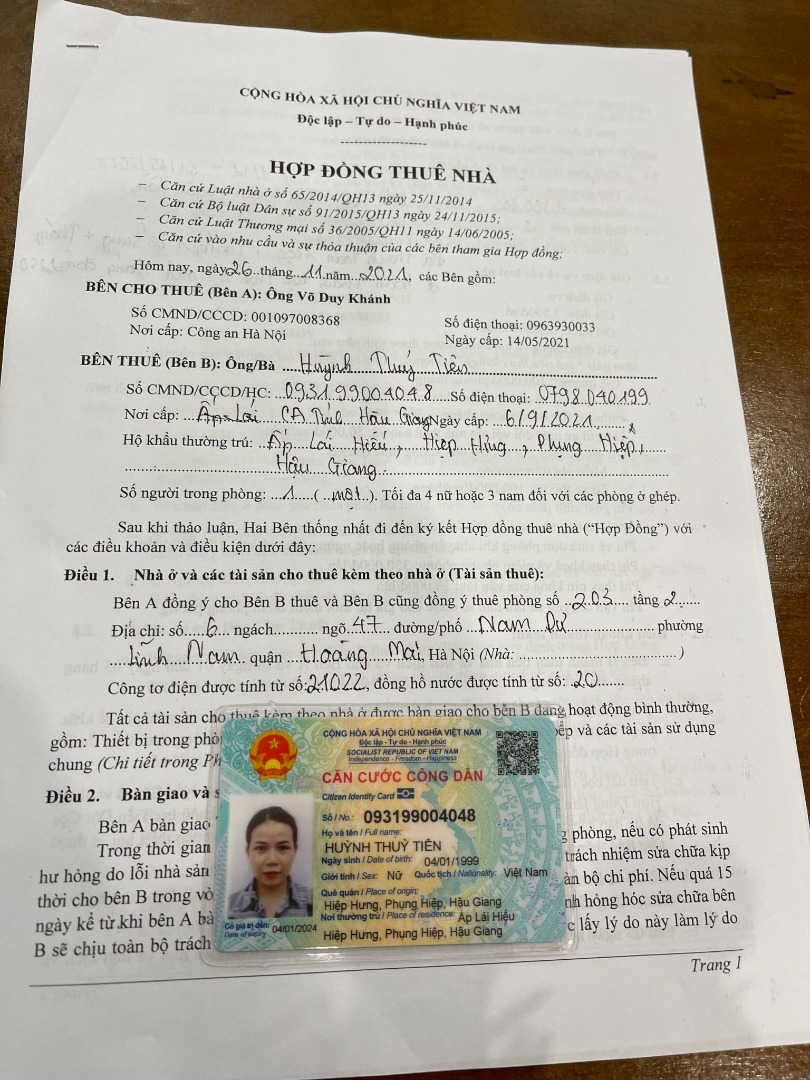 CỘNG HÒA XÃ HỘI CHỦ NGHĨA VIỆT NAM
Độc lập – Tự do – Hạnh phúc
HỢP ĐỒNG THUÊ NHÀ
– Căn cứ Luật nhà ở số 65/2014/QH13 ngày 25/11/2014
– Căn cứ Bộ luật Dân sự số 91/2015/QH13 ngày 24/11/2015;
– Căn cứ Luật Thương mại số 36/2005/QH11 ngày 14/06/2005;
– Căn cứ vào nhu cầu và sự thỏa thuận của các bên tham gia Hợp đồng;
Hôm nay, ngày 26 tháng 11 năm 2021, các Bên gồm:
BÊN CHO THUÊ (Bên A): Ông Võ Duy Khánh
Số CMND/CCCD: 001097008368
Số điện thoại: 0963930033
Nơi cấp: Công an Hà Nội
Ngày cấp: 14/05/2021
BÊN THUÊ (Bên B): Ông/Bà Huỳnh Thuỷ Tiên
Số CMND/CCCD/HC: 093199004048 Số điện thoại: 0798040199
Nơi cấp: CA Tỉnh Hậu Giang Ngày cấp: 6/9/2021
Hộ khẩu thường trú: Ấp Lái Hiếu, Hiệp Hưng, Phụng Hiệp,
Hậu Giang
Số người trong phòng: 1 (một). Tối đa 4 nữ hoặc 3 nam đối với các phòng ở ghép.
Sau khi thảo luận, Hai Bên thống nhất đi đến ký kết Hợp đồng thuê nhà (“Hợp Đồng”) với
các điều khoản và điều kiện dưới đây:
Điều 1. Nhà ở và các tài sản cho thuê kèm theo nhà ở (Tài sản thuê):
Bên A đồng ý cho Bên B thuê và Bên B cũng đồng ý thuê phòng số 203 tầng 2
Địa chỉ: số 6 ngách ngõ 47 đường/phố Nam Dư phường
Lĩnh Nam quận Hoàng Mai, Hà Nội (Nhà: )
Công tơ điện được tính từ số: 21022, đồng hồ nước được tính từ số: 20
Tất cả tài sản cho thuê kèm theo nhà ở được bàn giao cho bên B đang hoạt động bình thường,
gồm: Thiết bị trong phò ếp và các tài sản sử dụng
chung (Chi tiết trong Ph
Điều 2. Bàn giao và s
Bên A bàn giao g phòng, nếu có phát sinh
Trong thời gian trách nhiệm sửa chữa kịp
hư hỏng do lỗi nhà sản àn bộ chi phí. Nếu quá 15
thời cho bên B trong vò nh hỏng hóc sửa chữa bên
ngày kể từ khi bên A bà c lấy lý do này làm lý do
B sẽ chịu toàn bộ trách
Trang 1
CỘNG HÒA XÃ HỘI CHỦ NGHĨA VIỆT NAM
Độc lập - Tự do - Hạnh phúc
SOCIALIST REPUBLIC OF VIET NAM
Independence - Freedom - Happiness
CĂN CƯỚC CÔNG DÂN
Citizen Identity Card
Số / No.: 093199004048
Họ và tên / Full name:
HUỲNH THUỶ TIÊN
Ngày sinh / Date of birth: 04/01/1999
Giới tính / Sex: Nữ Quốc tịch / Nationality: Việt Nam
Quê quán / Place of origin:
Hiệp Hưng, Phụng Hiệp, Hậu Giang
Nơi thường trú / Place of residence: Ấp Lái Hiếu
Hiệp Hưng, Phụng Hiệp, Hậu Giang
Có giá trị đến: 04/01/2024
Date of expiry